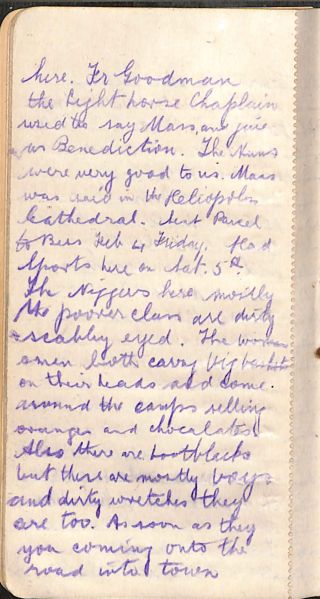 here. Fr Goodman
the Light horse Chaplain
used to say Mass, and give
us Benediction. The Nuns
were very good to us. Mass
was said in the Heliopolis
Cathedral. Sent Parcel
to Bess Feb 4 Friday. Had
Sports here on Sat. 5th.
The Niggers here mostly
the poorer class are dirty
scabby eyed. The woman
& men both carry big baskets
on their heads and come
around the camps selling
oranges and chocolates.
Also there are bootblacks
but these are mostly boys
and dirty wretches they
are too. As soon as they
you coming onto the
road into town